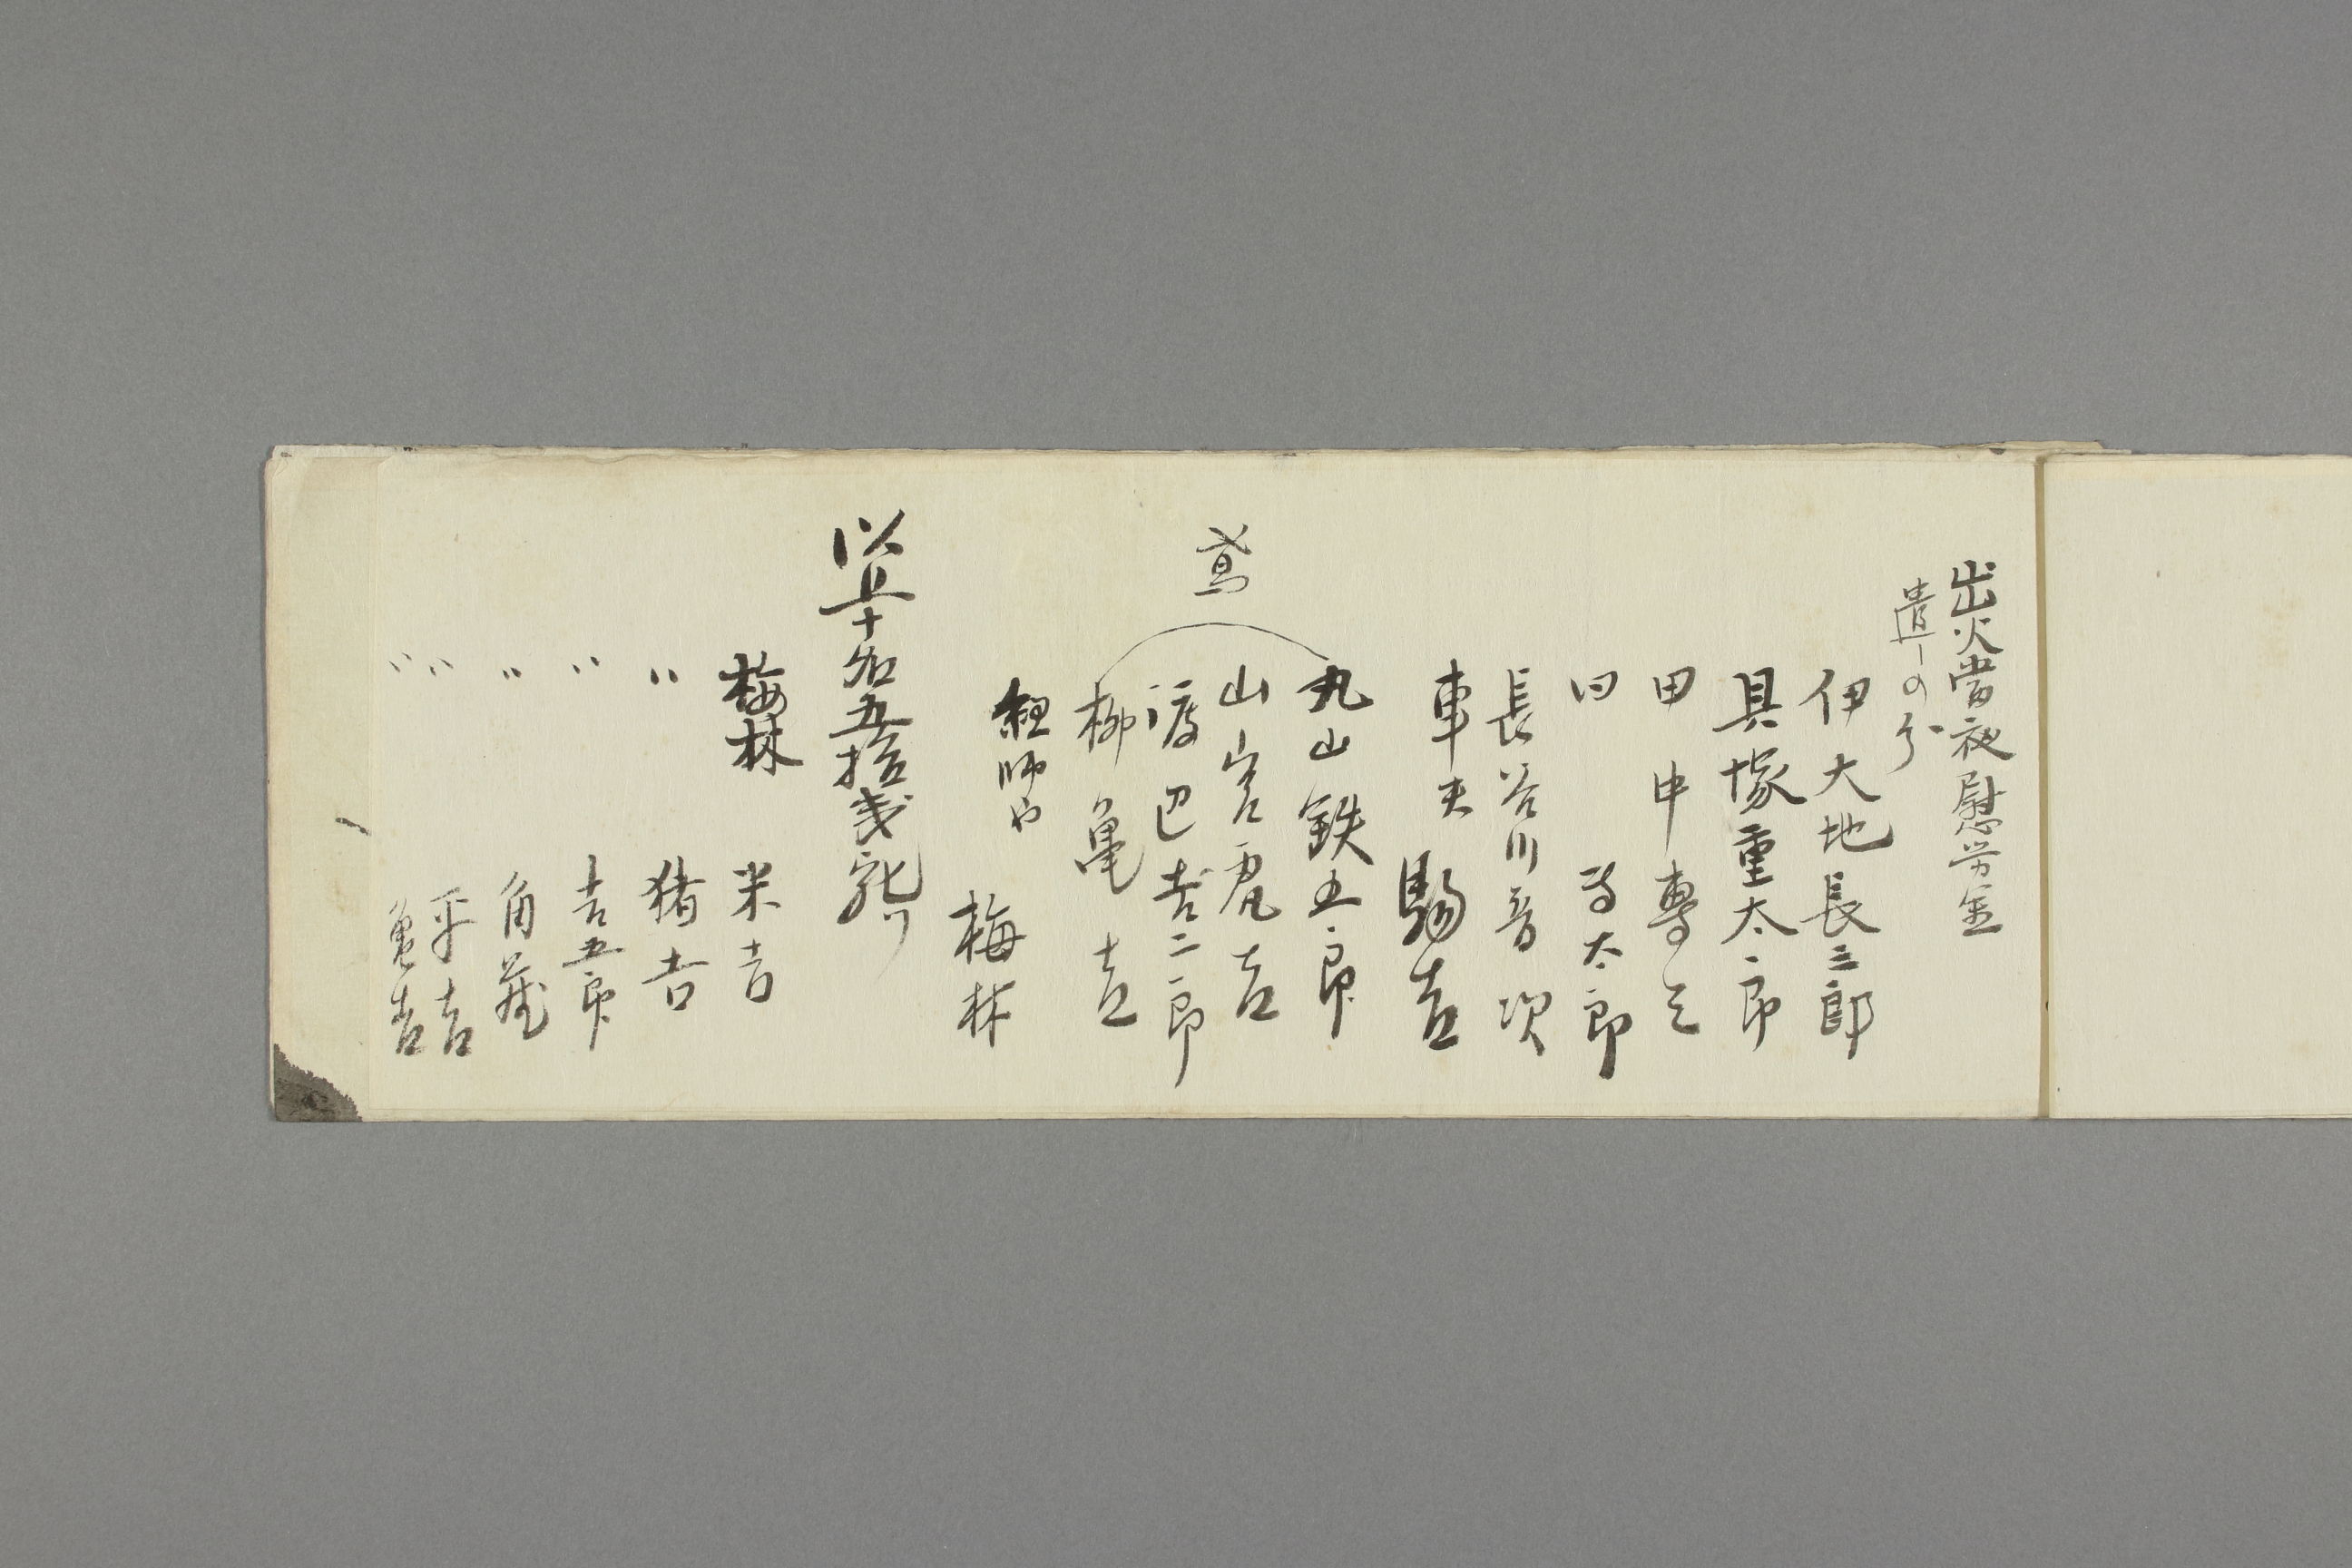 出火当夜慰労金
遣しの分
伊大地長三郎
貝塚重太郎
田中専之
同 与太郎
長谷川音次
車夫 賜吉
鳶
丸山鉄五郎
山岩虎吉
渡辺吉二郎
柳亀吉
経師や 梅林
以上十名五拾戋宛
梅林 米吉
〃 猪吉
〃 吉五郎
〃 角蔵
〃 平吉
〃 亀吉